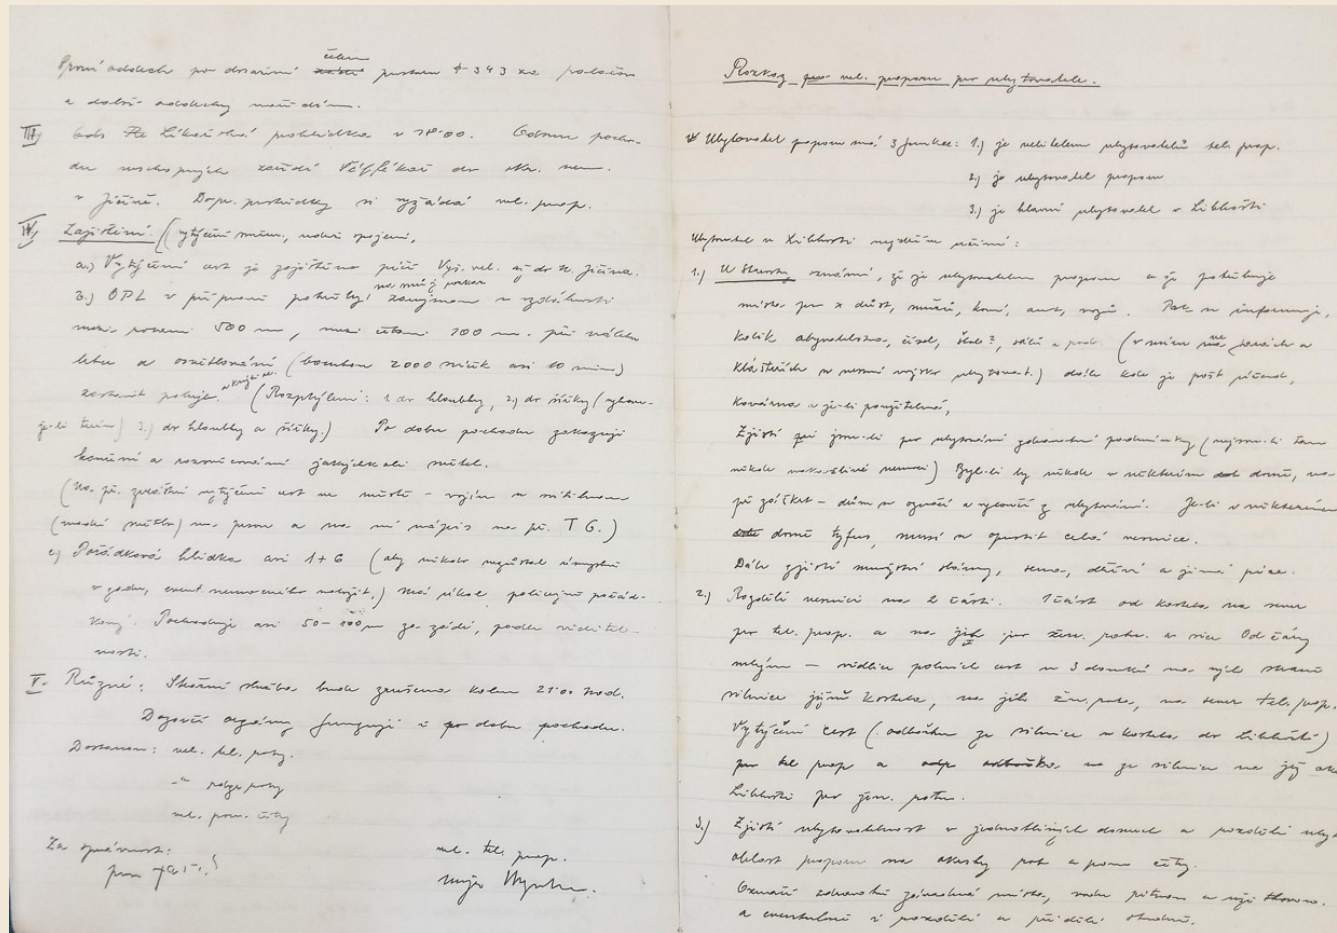 První oddech po dosažení čelem prostoru k 343 za
a další oddechy
III) pohlídka v 18:00. Odsun pocho-
du neschopných zařídí lékař do nem.
v Jičíně. si vyžádá vel. prap.
IV) Zajištění: (vytýčení směru, udrž. spojení,
a.) Vytýčení cest je zajištěno péčí Vyš. vel. až do Jičína.
b.) OPL v případě potřeby zaujmou v vzdálenosti
mezi rotami 500 m, mezi četami 100 m. při náletu
letců a osvětlování (bomba 2000 svíček asi 10 min)
zastavit pohyb. (Rozptýlení: 1. do hloubky, 2.) do šířky (vyhov-
je-li terén) 3.) do hloubky a šířky.) Po dobu pochodu zakazuji
kouření a rozsvěcování jakýchkoli světel.
(Na př. zvláštní vytýčení cest ve městě – vojín se svítilnou
(modré světlo) na prsou a na ní nápis na př. TG.)
c) Pořádková hlídka asi 1+6 (aby nikdo nezůstal
v zadu, event. nemocného naložit.) Má úkol policejně pořád-
kový. Pochoduje asi 50–100 m za zádí, podle viditel-
nosti.
V. Různé: Stáжní služba bude zrušena kolem 21:00 hod.
Dozorčí orgány fungují i po dobu pochodu.
Dostanou: vel. tel. roty.
–"– roty
vel. pom. čety
Za správnost:
vel. tel. prap.
major
Rozkaz vel. praporu pro ubytovatele.
Ubytovatel praporu má 3 funkce: 1.) je velitelem ubytovatelů tel. prap.
2.) je ubytovatel praporu
3.) je hlavní ubytovatel v Libhošti
Ubytovatel v Libhošti nejdřív učiní:
1.) U Starosty oznámí, že je ubytovatelem praporu a že potřebuje
místa pro x důst., mužů, koní, aut, vozů. Pak se informuje,
kolik obyvatelstva, čísel, škol?, sálů a pod. (v míru ve farách a
klášterích se nesmí vojsko ubytovat.) dále kde je pošt. úřad,
kovárna a je-li použitelná,
Zjistí jsou-li pro ubytování zdravotní podmínky (nejsou-li tam
někde nakažlivé nemoci) Byl-li by někde v některém domě, na
př. záškrt – dům se označí a vyloučí z ubytování. Je-li v některém
domě tyfus, musí se opustit celá vesnice.
Dále zjistí množství slámy, sena, dříví a jiné píce.
2.) Rozdělí vesnici na 2 části. 1 část od kostela na sever
pro tel. prap. a na jih pro žen. rotu. a sice Od čáry
mlýn – vidlice polních cest u 3 domků na vých. straně
silnice jižně kostela, na jih žen. rota, na sever tel. prap.
Vytýčení cest (odbočka ze silnice u kostela do Libhoště)
pro tel. prap a na ze silnice na jih
Libhošti pro žen. rotu.
3.) Zjistí ubytovatelnost v jednotlivých domech a rozdělí
oblast praporu na okrsky rot a pom. čety.
Označí zdravotně závadná místa, vodu pitnou a
a eventuelně i rozdělí a přidělí studně.